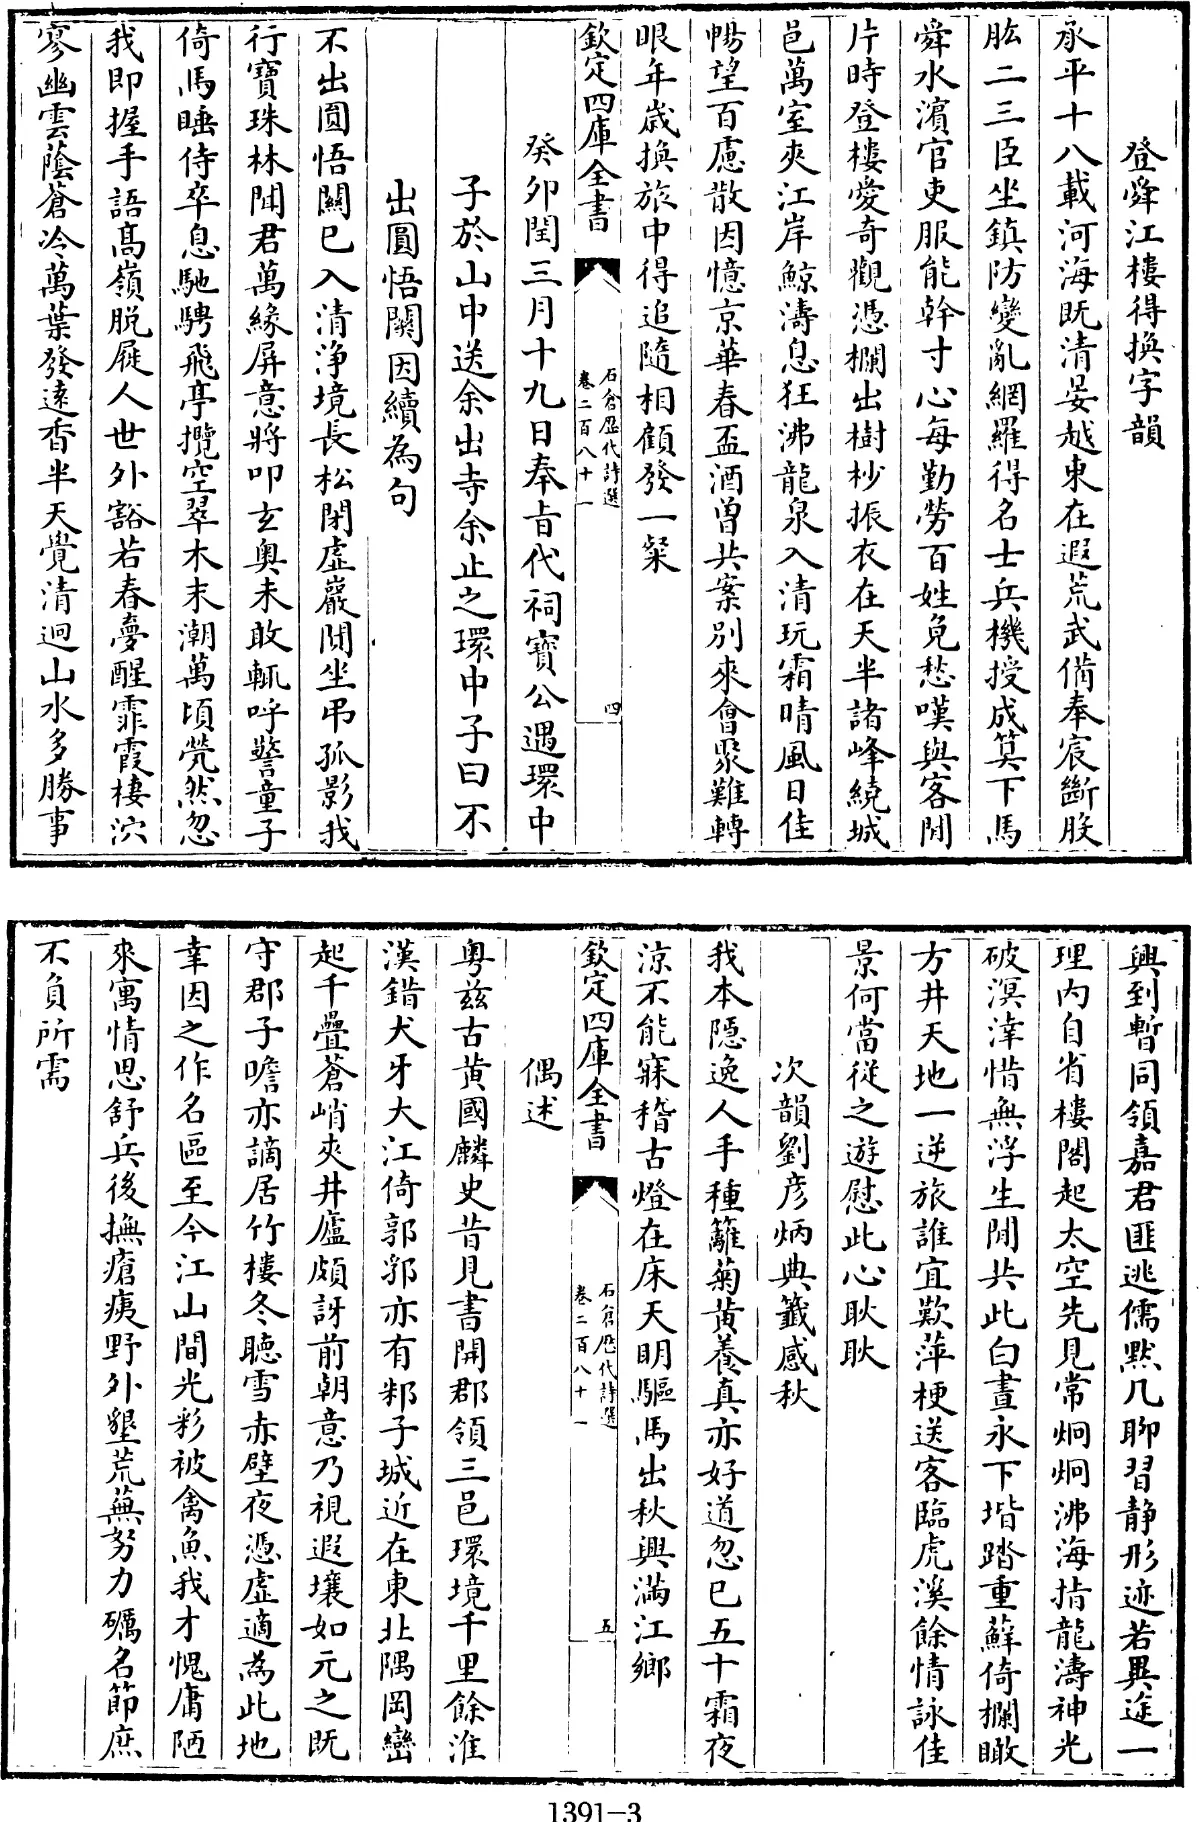 登舜江樓得換字韻
承平十八載河海既清晏越東在遐荒武備奉宸斷股
肱二三臣坐鎮防變亂網羅得名士兵機授成筭下馬
舜水濱官吏服能幹寸心每勤勞百姓免愁嘆與客閒
片時登樓愛奇觀憑欄出樹杪振衣在天半諸峰繞城
邑萬室夾江岸鯨濤息狂沸龍泉入清玩霜晴風日佳
暢望百慮散因憶京華春盃酒曾共案別來會聚難轉
眼年歲換旅中得追隨相顧發一粲
欽定四庫全書
石倉歷代詩選
卷二百八十一
四
癸卯閏三月十九日奉㫖代祠寶公遇環中
子於山中送余出寺余止之環中子曰不
出圓悟關因續為句
不出圓悟關已入清淨境長松閉虛巖閒坐弔孤影我
行寶珠林聞君萬緣屏意將叩玄奧未敢輒呼警童子
倚馬睡侍卒息馳騁飛亭攬空翠木末潮萬頃煢然忽
我即握手語高嶺脱屣人世外豁若春夢醒霏霞棲泬
寥幽雲蔭蒼冷萬葉發遠香半天覺清迥山水多勝事
興到暫同領嘉君匪逃儒默几聊習靜形迹若異途一
理内自省樓閣起太空先見常炯炯沸海指龍濤神光
破溟涬惜無浮生閒共此白晝永下堦踏重蘚倚欄瞰
方井天地一逆旅誰宜歎萍梗送客臨虎溪餘情詠佳
景何當從之遊慰此心耿耿
次韻劉彦炳典籖感秋
我本隱逸人手種籬菊黄養真亦好道忽已五十霜夜
涼不能寐稽古燈在床天明驅馬出秋興滿江鄉
欽定四庫全書
石倉歷代詩選
卷二百八十一
五
偶述
粤兹古黄國麟史昔見書開郡領三邑環境千里餘淮
漢錯犬牙大江倚郭郛亦有邾子城近在東北隅岡巒
起千疊蒼峭夾井廬頗訝前朝意乃視遐壤如元之既
守郡子瞻亦謫居竹樓冬聽雪赤壁夜憑虛適為此地
幸因之作名區至今江山間光彩被禽魚我才愧庸陋
來寓情思舒兵後撫瘡痍野外墾荒蕪努力礪名節庶
不負所需
1391-3